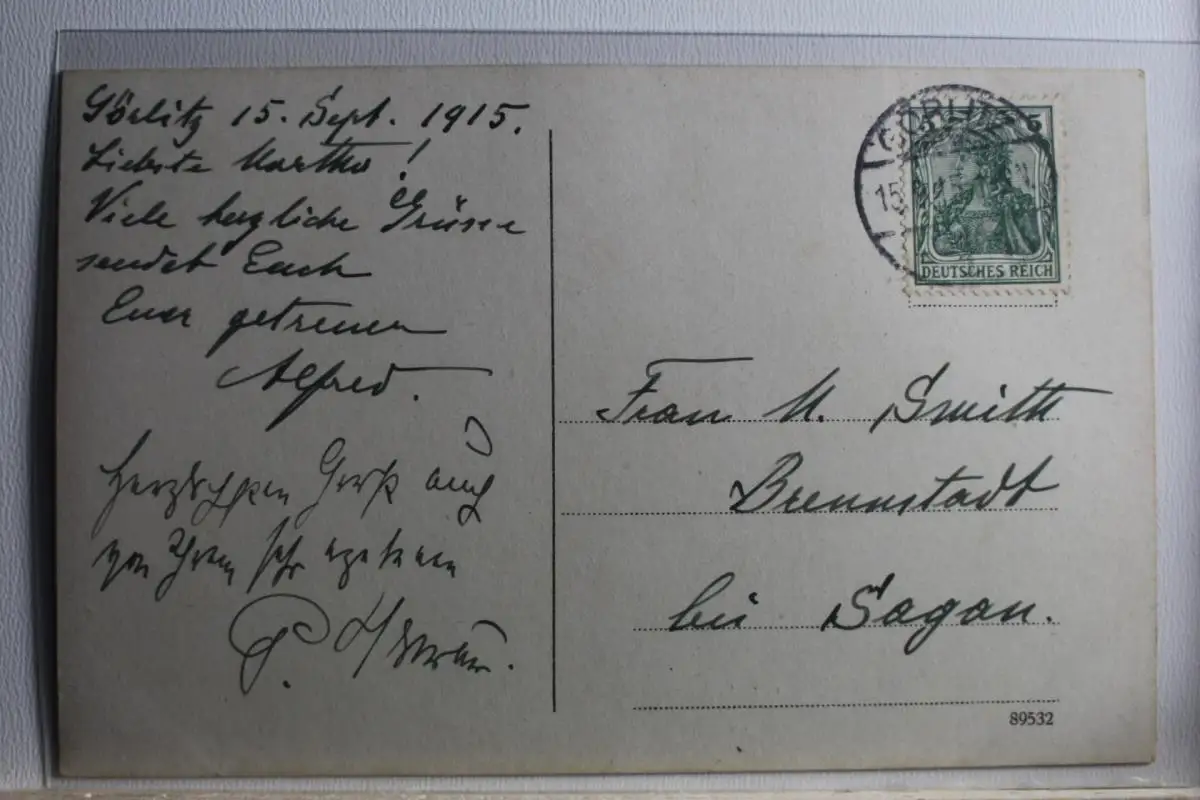 Görlitz 15. Sept. 1915.
Liebste Martha!
Viele herzliche Grüsse
sendet Euch
Euer getreuer
Alfred.
Herzlichen Gruß auch
von Ihrem sehr ergebenen
P.
GÖRLITZ
15
5 5
DEUTSCHES REICH
Frau M. Smith
Brennstadt
bei Sagan.
89532